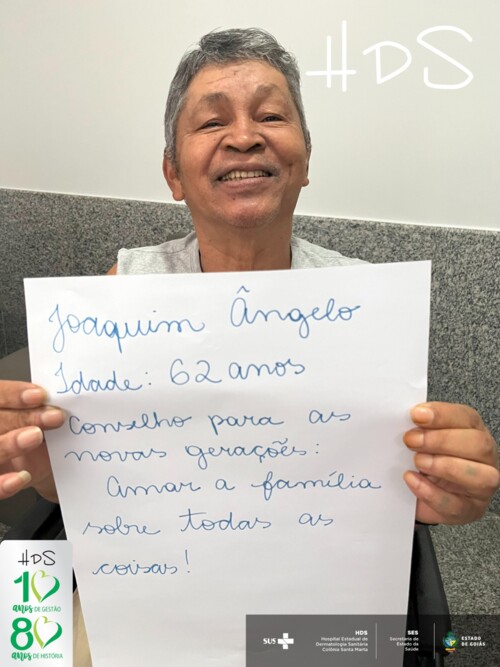 HDS
Joaquim Ângelo
Idade: 62 anos
Conselho para as
novas gerações:
Amar a família
sobre todas as
coisas!
HDS
10
anos DE GESTÃO
80
anos DE HISTÓRIA
SUS
HDS
Hospital Estadual de
Dermatologia Sanitária
Colônia Santa Marta
SES
Secretaria de
Estado da
Saúde
ESTADO
DE GOIÁS